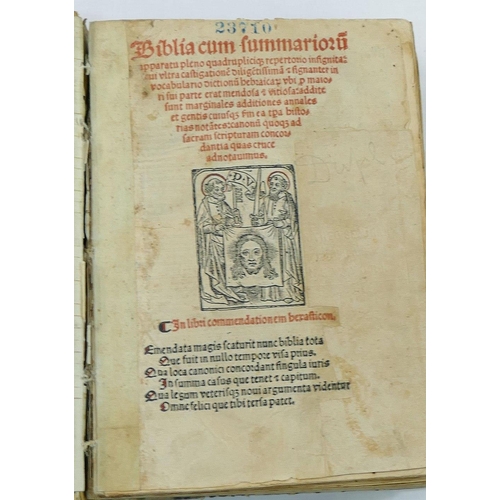 23710
Biblia cum summarioru̅
apparatu pleno quadrupliciqꝫ repertorio insignita:
cui vltra castigatione̅ dilige̅tissima̅ ⁊ signanter in
vocabulario dictionu̅ hebraicaꝝ vbi ꝓ maio-
ri sui parte erat mendosa ⁊ vitiosa: addite
sunt marginales additiones annales
et gentis cuiusqꝫ fm ea tꝑa histo-
rias nota̅tes: canonu̅ quoqꝫ ad
sacram scripturam concor-
dantia quas cruce
adnotauimus.
D. V
¶ In libri commendationem hexasticon.
Emendata magis scaturit nunc biblia tota
Que fuit in nullo tempore visa prius.
Qua loca canonici concordant singula iuris
In summa casus que tenet ⁊ capitum.
Qua legum veterisqꝫ noui argumenta videntur
Omne felici que tibi tersa patet.